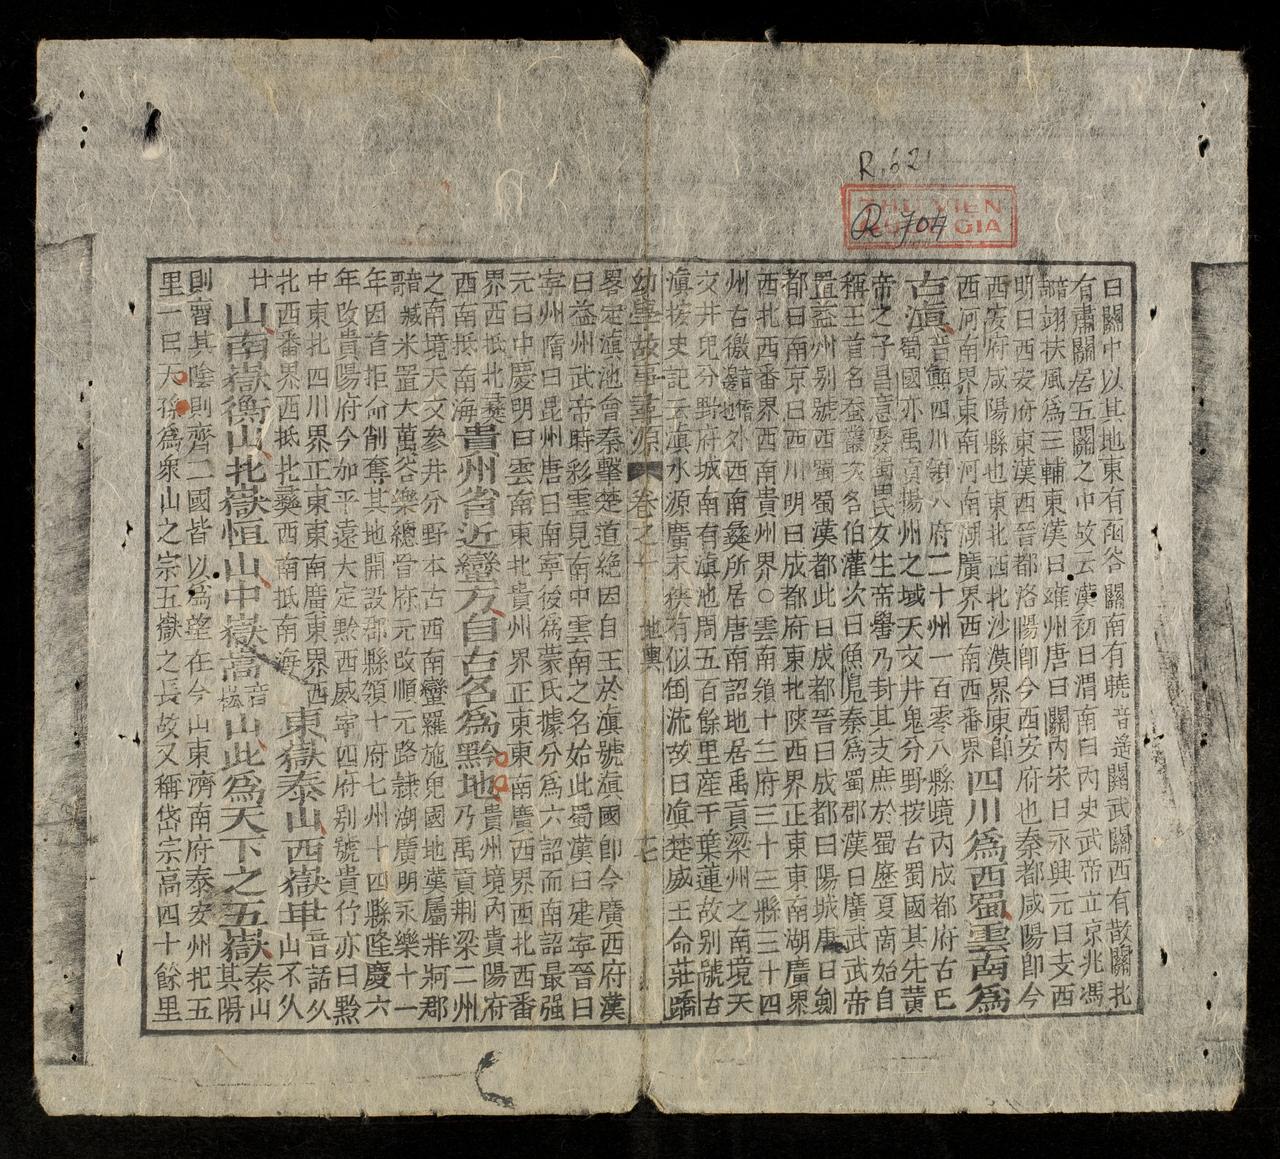 R.621
THU VIEN
QUOC GIA
R 704
曰關中以其地東有函谷關南有嶢音遥關武關西有散關北
有肅關居五關之中故云漢初曰渭南曰內史武帝立京兆馮
翊扶風為三輔東漢曰雍州唐曰關內宋曰永興元曰支西
明曰西安府東漢西晉都洛陽卽今西安府也秦都咸陽卽今
西安府咸陽縣也東北西北沙漠界東節
西河南界東南河南湖廣界西南西番界四川為西蜀雲南為
古滇音顛四川領八府二十州一百零八縣境內成都府古巴
蜀國亦禹貢揚州之域天文井鬼分野按古蜀國其先黃
帝之子昌意娶蜀民女生帝嚳乃封其支庶於蜀歷夏商始自
稱王首名蚕叢次名伯灌次曰魚鳧秦為蜀郡漢曰廣武武帝
置益州别號西蜀蜀漢都此曰成都晉曰成都曰陽城唐曰劍
都曰南京曰西川明曰成都府東北陝西界正東東南湖廣界
西北西番界西南貴州界○雲南領十三府三十三縣三十四
州古徼外西南彝所居唐南詔地居禹貢梁州之南境天
文井鬼分野府城南有滇池周五百餘里産千葉蓮故别號古
滇按史記云滇水源廣末狹有似倒流故曰滇楚威王命莊蹻
幼學故事尋源 卷之十 地輿 十七
畧定滇池會秦擊楚道絶因自王於滇號滇國卽今廣西府漢
曰益州武帝時彩雲見南中雲南之名始此蜀漢曰建寧晉曰
寧州隋曰昆州唐曰南寧後為蒙氏據分為六詔而南詔最强
元曰中慶明曰雲南東北貴州界正東東南廣西界西北西番
界西抵北彝貴州省近蠻方自古名為黔地貴州境內貴陽府
西南抵南海乃禹貢荆梁二州
之南境天文參井分野本古西南蠻羅施鬼國地漢屬牂牁郡
米置大萬谷樂總管府元改順元路隷湖廣明永樂十一
年因首拒命削奪其地開設郡縣領十府七州十四縣隆慶六
年改貴陽府今加平遠大定黔西威寧四府别號貴竹亦曰黔
中東北四川界正東東南廣東界西東嶽泰山西嶽華音話从
北西番界西抵北彝西南抵南海山不从
廿山南嶽衡山北嶽恒山中嶽嵩音崧山此為天下之五嶽泰山
其陽
則齊其陰則齊二國皆以為望在今山東濟南府泰安州把五
里一曰天孫為衆山之宗五嶽之長故又稱岱宗高四十餘里